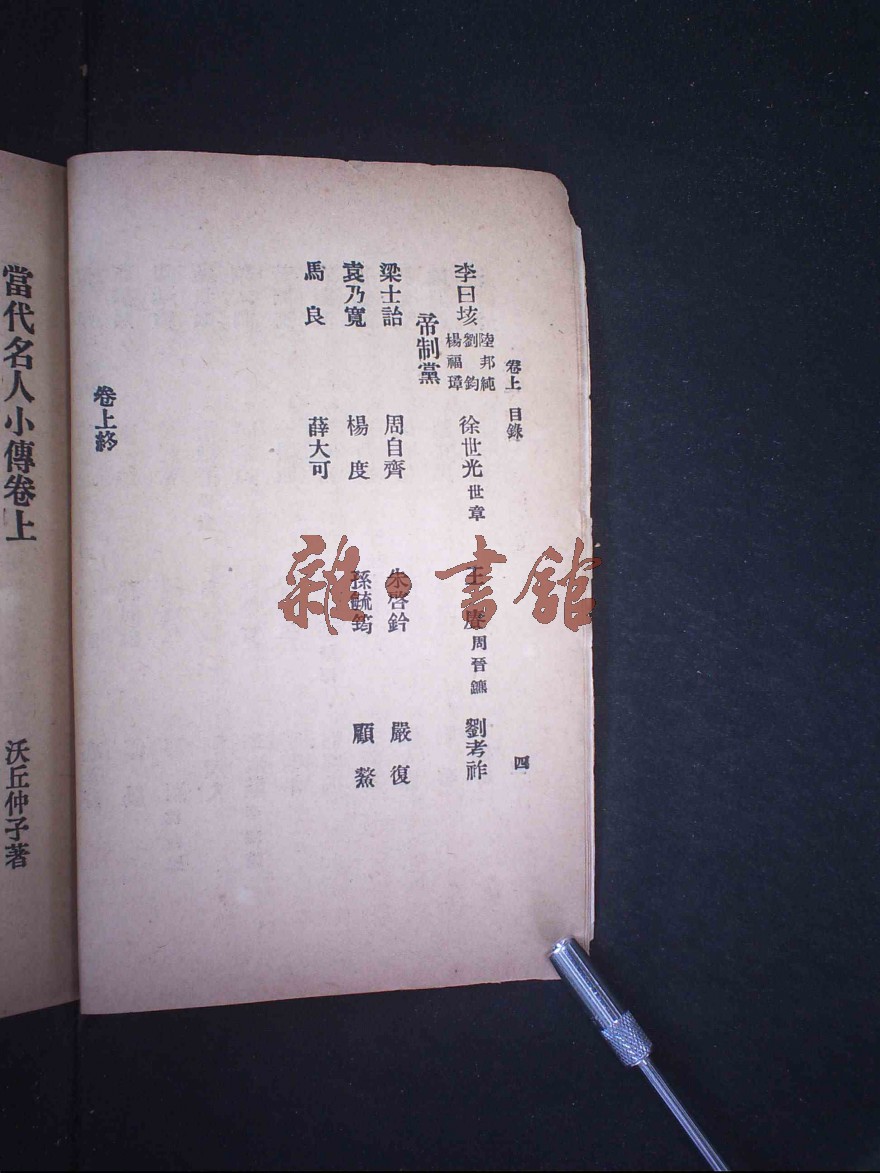 卷上 目錄 四
李曰垓 陸邦純 劉鈞 楊福璋 徐世光 世章 王 周晉鑣 劉考祚
帝制黨
梁士詒 周自齊 朱啓鈐 嚴復
袁乃寬 楊度 孫毓筠 顧鰲
馬良 薛大可
卷上終
當代名人小傳卷上
沃丘仲子著
雜書館